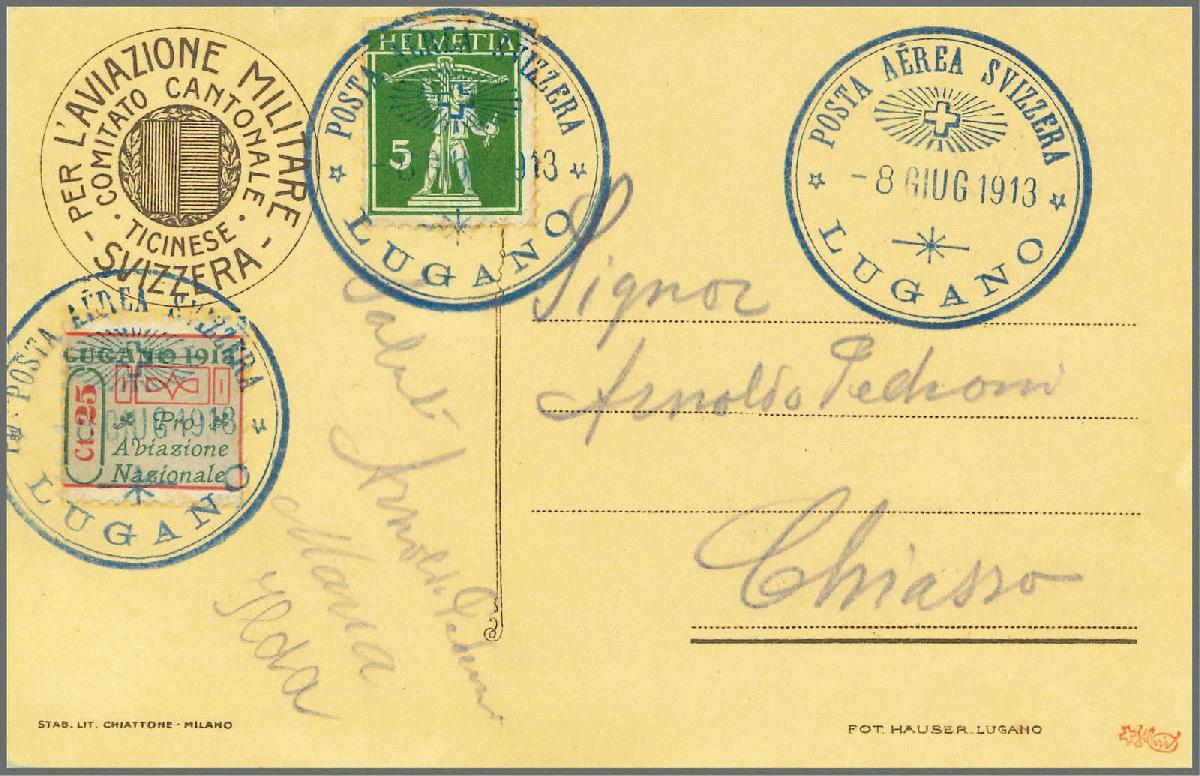 PER L'AVIAZIONE MILITARE
COMITATO CANTONALE
· TICINESE ·
- SVIZZERA -
HELVETIA
5
POSTA AÉREA SVIZZERA
-8 GIUG 1913
LUGANO
POSTA AÉREA SVIZZERA
-8 GIUG 1913
LUGANO
POSTA AÉREA SVIZZERA
GIUG 1913
LUGANO
LUGANO 1913
Ct. 25
Pro
Aviazione
Nazionale
Signor
Arnoldo Pedroni
Chiasso
Saluti
Arnoldo Pedroni
Maria
Ilda
STAB. LIT. CHIATTONE - MILANO
FOT. HAUSER. LUGANO